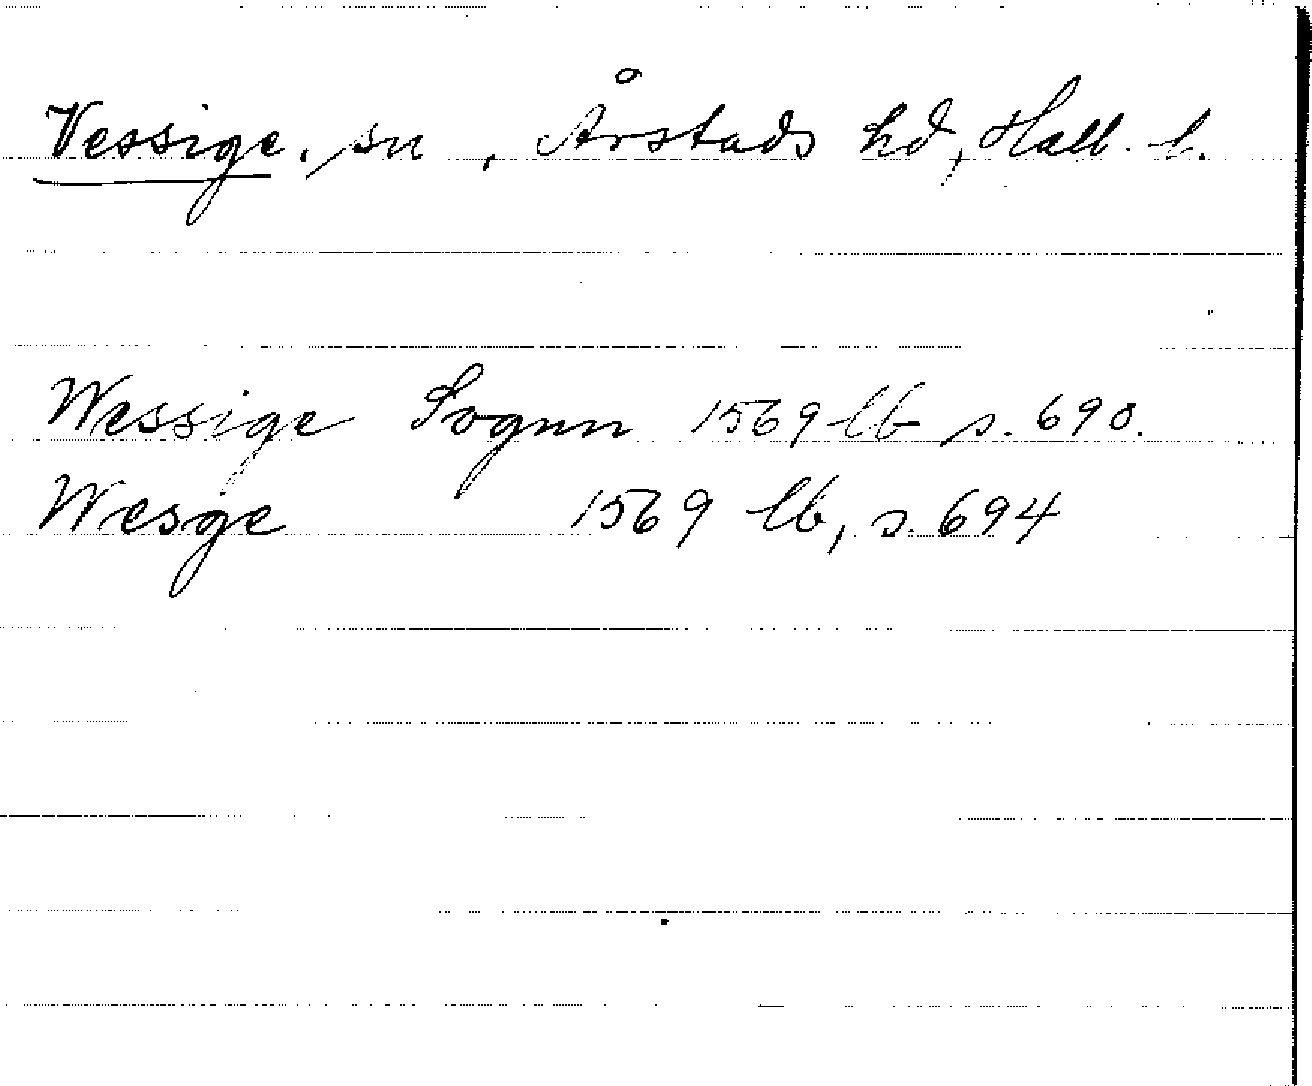 Vessige, sn, Årstads hd, Hall. l.
Wessige Sognn 1569 lb s. 690.
Wesge 1569 lb, s. 694